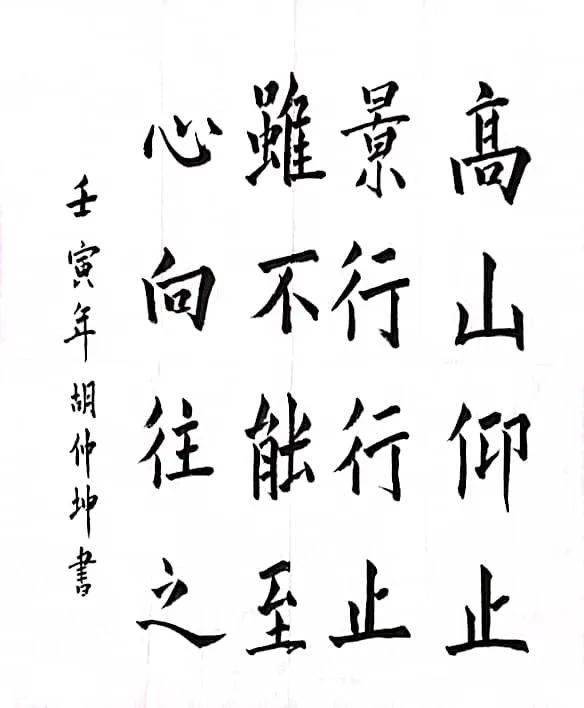 高山仰止
景行行止
雖不能至
心向往之
壬寅年胡仲坤書